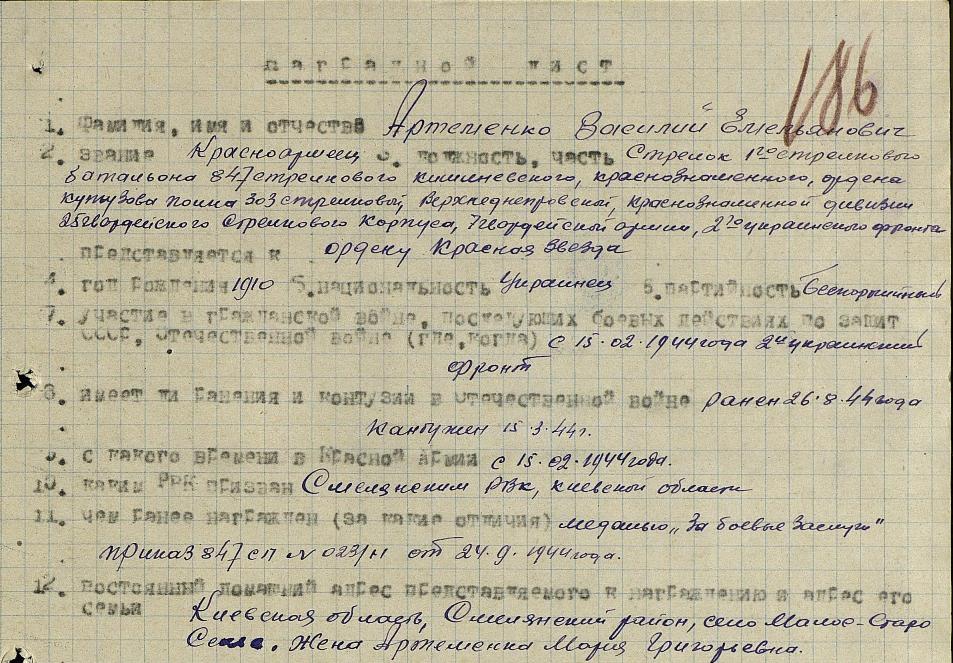 186
Наградной лист
1. Фамилия, имя и отчество Артеменко Василий Емельянович
2. звание Красноармеец 3. должность, часть Стрелок 1го стрелкового
батальона 847 стрелкового кишиневского, краснознаменного, ордена
кутузова полка 303 стрелковой, Верхнеднепровской, краснознаменной дивизии
25 Гвардейского Стрелкового Корпуса, 7 Гвардейской армии, 2го украинского фронта
представляется к ордену Красная Звезда
4. год рождения 1910 5. национальность Украинец 6. партийность беспартийный
7. участие в гражданской войне, последующих боевых действиях по защит
СССР, Отечественной войне (где, когда) с 15.02.1944 года 2й украинский
фронт
8. имеет ли ранения и контузии в отечественной войне ранен 26.8.44 года
Кантужен 15.3.44г.
9. с какого времени в Красной Армии с 15.02.1944 года.
10. каким РВК призван Смелянским РВК, киевской области
11. чем ранее награжден (за какие отличия) медалью „За боевые заслуги"
приказ 847 сп № 023/н от 24.9.1944 года.
12. постоянный домашний адрес представляемого к награждению и адрес его
семьи Киевская область, Смелянский район, село Малое-Старо
Селье. Жена Артеменка Мария Григорьевна.